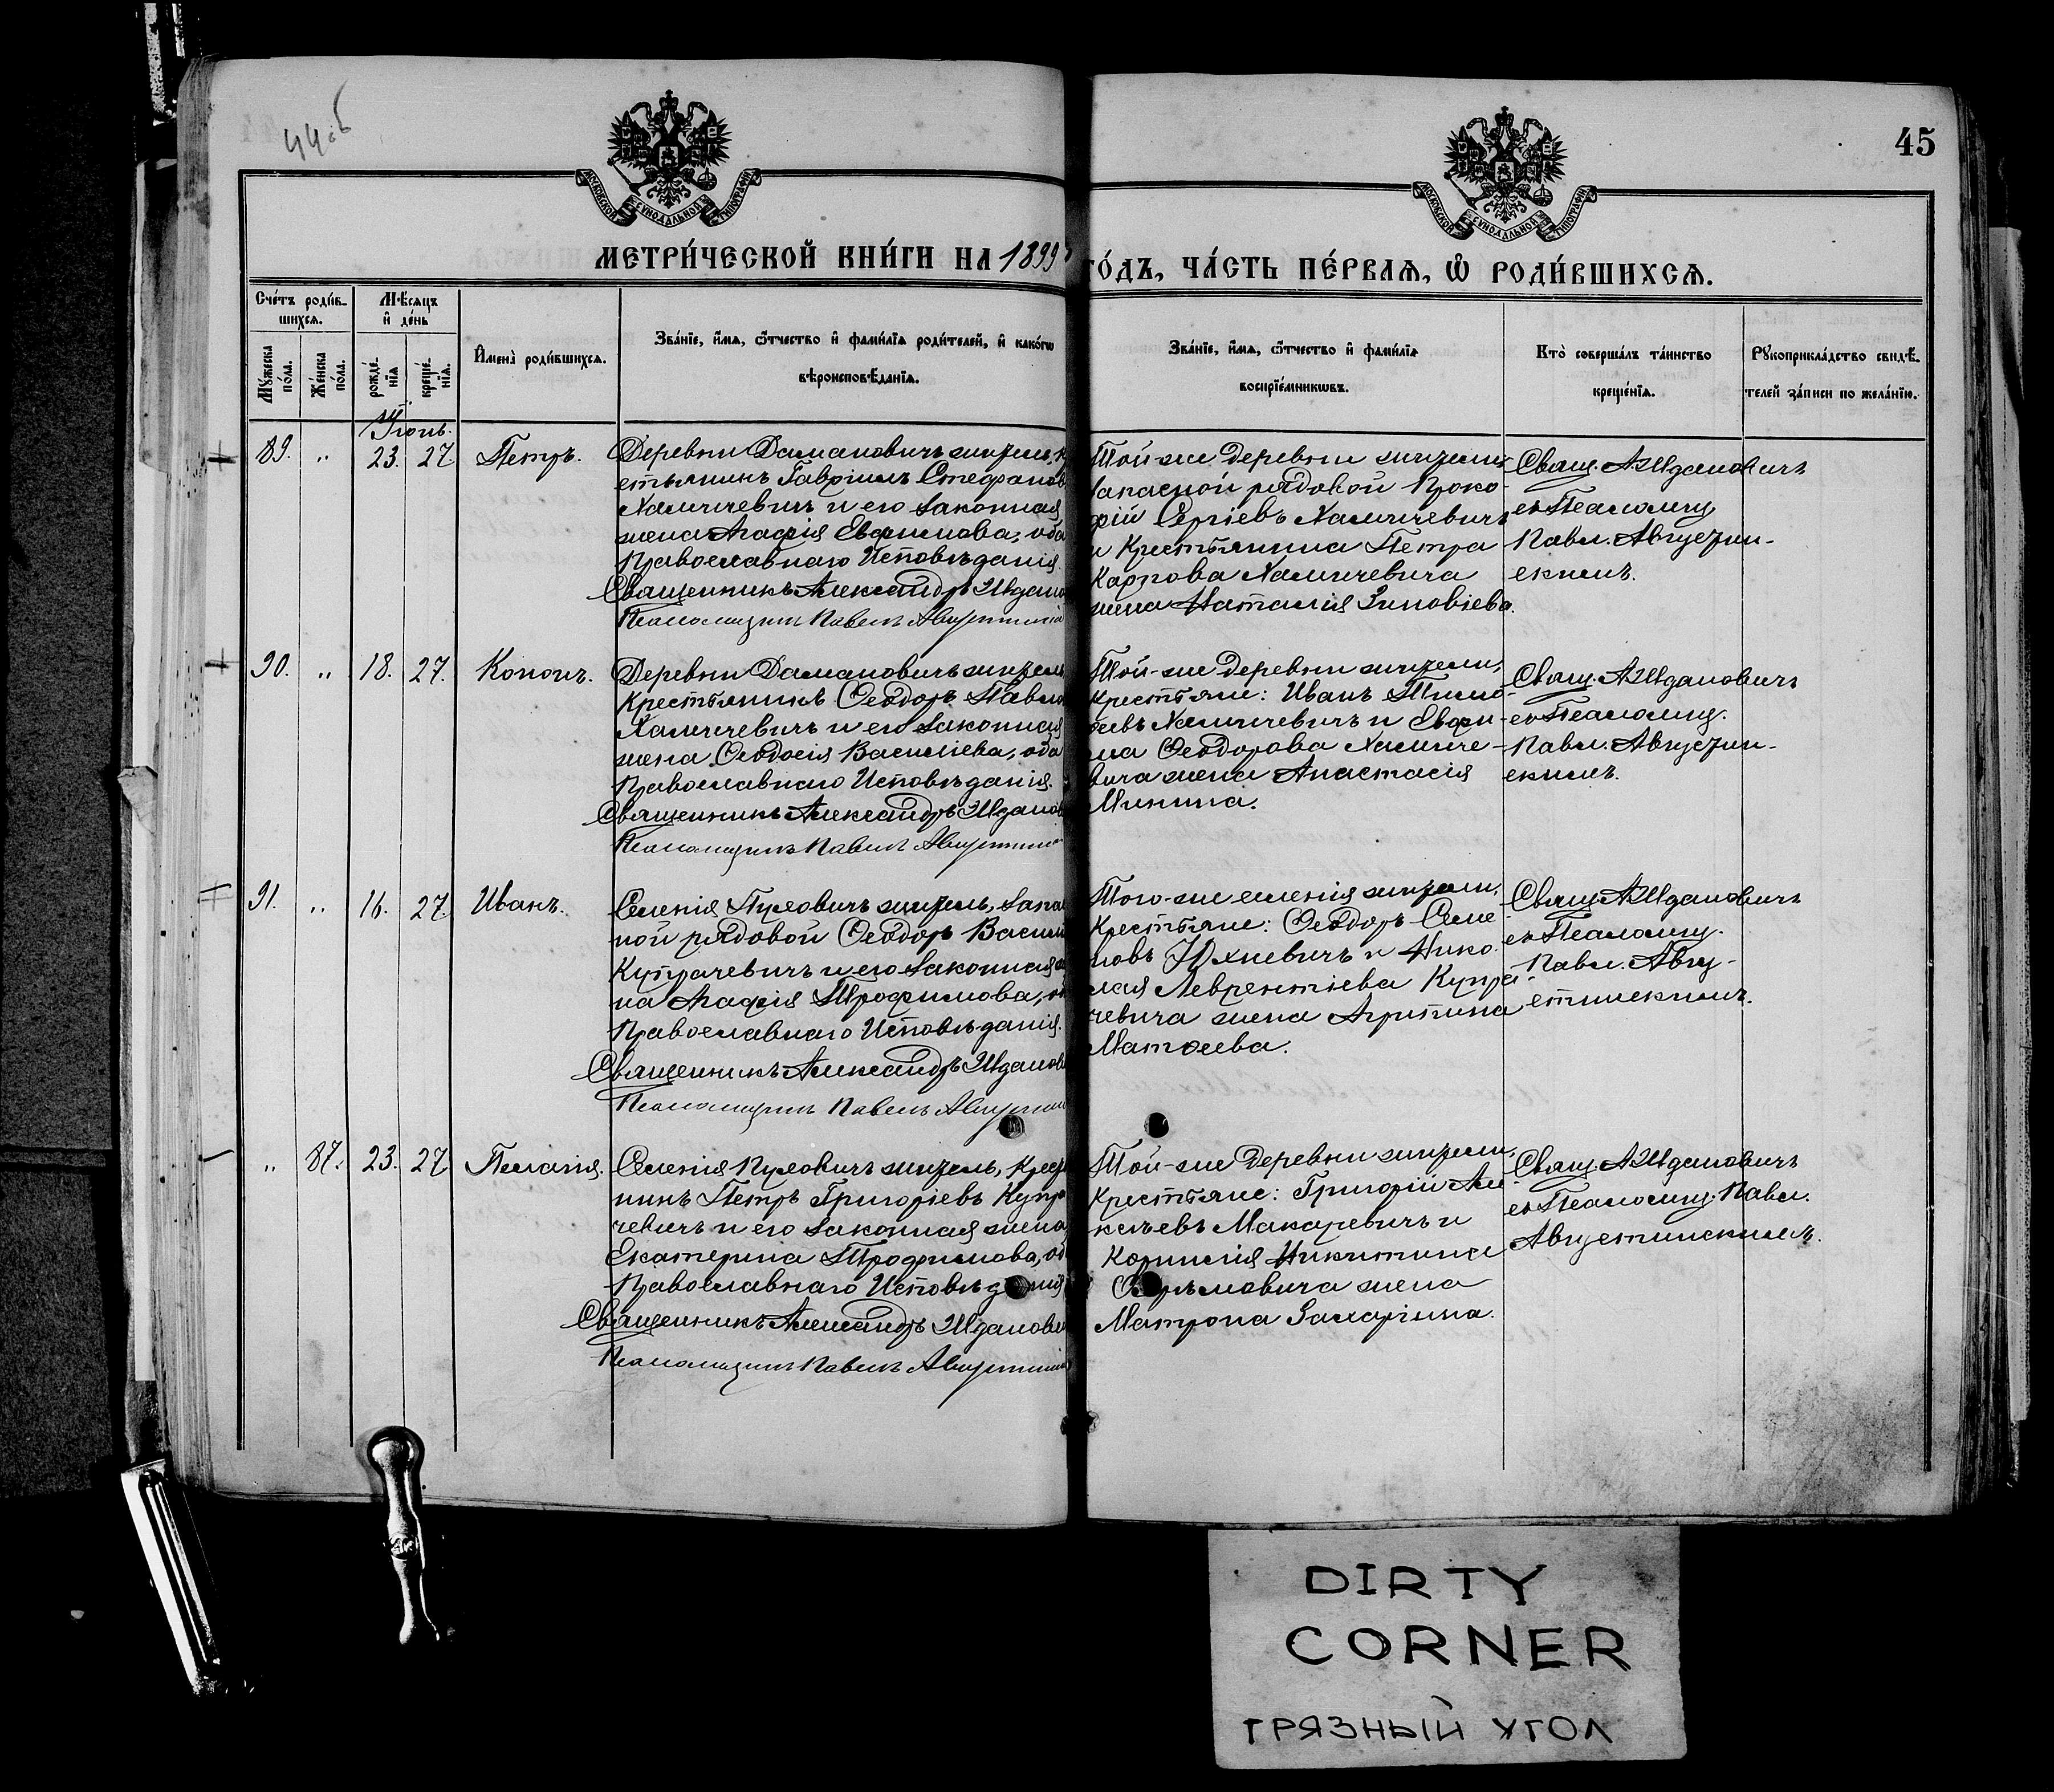 44об
45
МОСКОВСКОЙ СѴНОДАЛЬНОЙ ТИПОГРАФІИ
МОСКОВСКОЙ СѴНОДАЛЬНОЙ ТИПОГРАФІИ
МЕТРИ́ЧЕСКОЙ КНИ́ГИ НА 1899
ГО́ДЪ, ЧА́СТЬ ПЕ́РВАѦ, Ѽ РОДИ́ВШИХСѦ.
Сче́тъ роди́в-
шихсѧ.
Мѣ́сѧцъ
и҆ де́нь
Мꙋ́жеска по́ла.
Же́нска по́ла.
рожде́-нїѧ
креще́-нїѧ.
И҆мена̀ роди́вшихсѧ.
Зва́нїе, и҆́мѧ, ѻ҆́тчество и҆ фами́лїѧ роди́телей, и҆ како́гѡ
вѣроисповѣ́данїѧ.
Зва́нїе, и҆́мѧ, ѻ҆́тчество и҆ фами́лїѧ
воспрїе́мникѡвъ.
Кто̀ соверша́лъ та́инство
креще́нїѧ.
Рꙋкоприкла́дство свидѣ́-
телей за́писи по жела́нїю.
Іюнь.
89. „ 23. 27. Петръ.
Деревни Дамановичъ житель, к
стьянинъ Гавріилъ Стефанов
Халичевичъ и его законная
жена Агафія Евфимова, оба
Православнаго Исповѣданія.
Священникъ Александръ Ждано
Псаломщикъ Павелъ Августині
Той-же деревни жители
запасной рядовой Проко-
фій Сергіевъ Халичевичъ
и крестьянина Петра
Карпова Халичевича
жена Наталія Зиновіева.
Свящ. А. Ждановичъ
съ Псаломщ.
Павл. Августин-
скимъ.
90. „ 18. 27. Кононъ.
Деревни Дамановичъ житель
крестьянинъ Ѳеодоръ Павло
Халичевичъ и его законная
жена Ѳеодосія Василіева, оба
Православнаго Исповѣданія.
Священникъ Александръ Жданов
Псаломщикъ Павелъ Августини
Той-же деревни жители,
крестьяне: Иванъ Тимо-
ѳеевъ Халичевичъ и Евфи-
ма Ѳеодорова Халиче-
вича жена Анастасія
Минина.
Свящ. А. Ждановичъ
съ Псаломщ.
Павл. Августин-
скимъ.
91. „ 16. 27. Иванъ.
Селенія Пуховичъ житель, запа
ной рядовой Ѳеодоръ Васил
Купрачевичъ и его законная
на Агафія Трофимова, об
Православнаго Исповѣданія.
Священникъ Александръ Жданов
Псаломщикъ Павелъ Августин
Того-же селенія жители,
крестьяне: Ѳеодоръ Семе-
новъ Юхневичъ и Нико-
лая Лаврентіева Купра-
чевича жена Агрипина
Матѳеева.
Свящ. А. Ждановичъ
съ Псаломщ.
Павл. Авгу-
стинскимъ.
„ 87. 23. 27. Пелагія.
Селенія Пуховичъ житель, крест
нинъ Петръ Григоріевъ Купра
чевичъ и его законная жена
Екатерина Трофимова, об
Православнаго Исповѣданія
Священникъ Александръ Жданови
Псаломщикъ Павелъ Августини
Той-же деревни жители,
крестьяне: Григорій Але-
ксѣевъ Макаревичъ и
Корнилія Никитина
жена
Матрона Захаріина.
Свящ. А. Ждановичъ
съ Псаломщ. Павл.
Августинскимъ.
DIRTY
CORNER
ГРЯЗНЫЙ УГОЛ